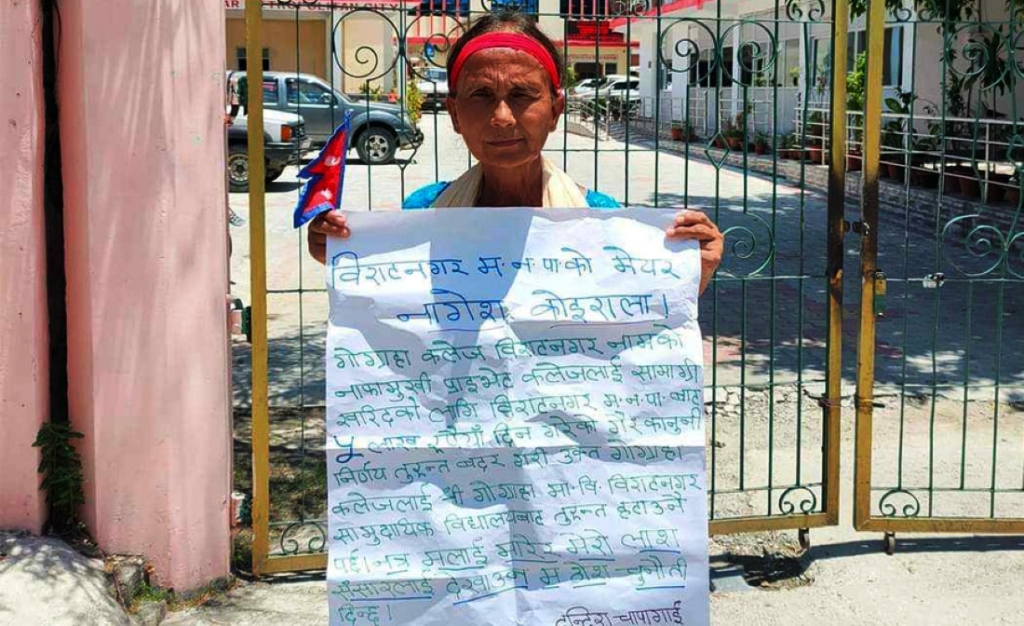 AR METROPOLITAN CITY
विराटनगर म.न.पा.को मेयर
नागेश कोइराला।
गोग्राहा कलेज विराटनगर नामको
नाफामुखी प्राइभेट कलेजलाई सामाग्री
खरिदको लागि विराटनगर म.न.पा. बाट
५ लाख रूपैयाँ दिने गरेको गैर कानुनी
निर्णय तुरुन्त बदर गरी उक्त गोग्राहा
कलेजलाई श्री गोग्राहा मा.वि. विराटनगर
सामुदायिक विद्यालयबाट तुरुन्त हटाउनै
पर्छ। नत्र मलाई मारेर मेरो लाश
संसारलाई देखाउन म ठोस चुनौती
दिन्छु।
इन्दिरा चापागाई